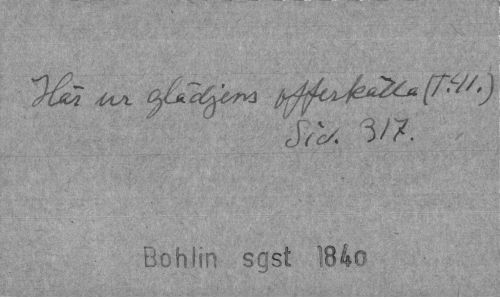 Här ur glädjens offerkälla (T.U.)
Sid. 317.
Bohlin sgst 1840